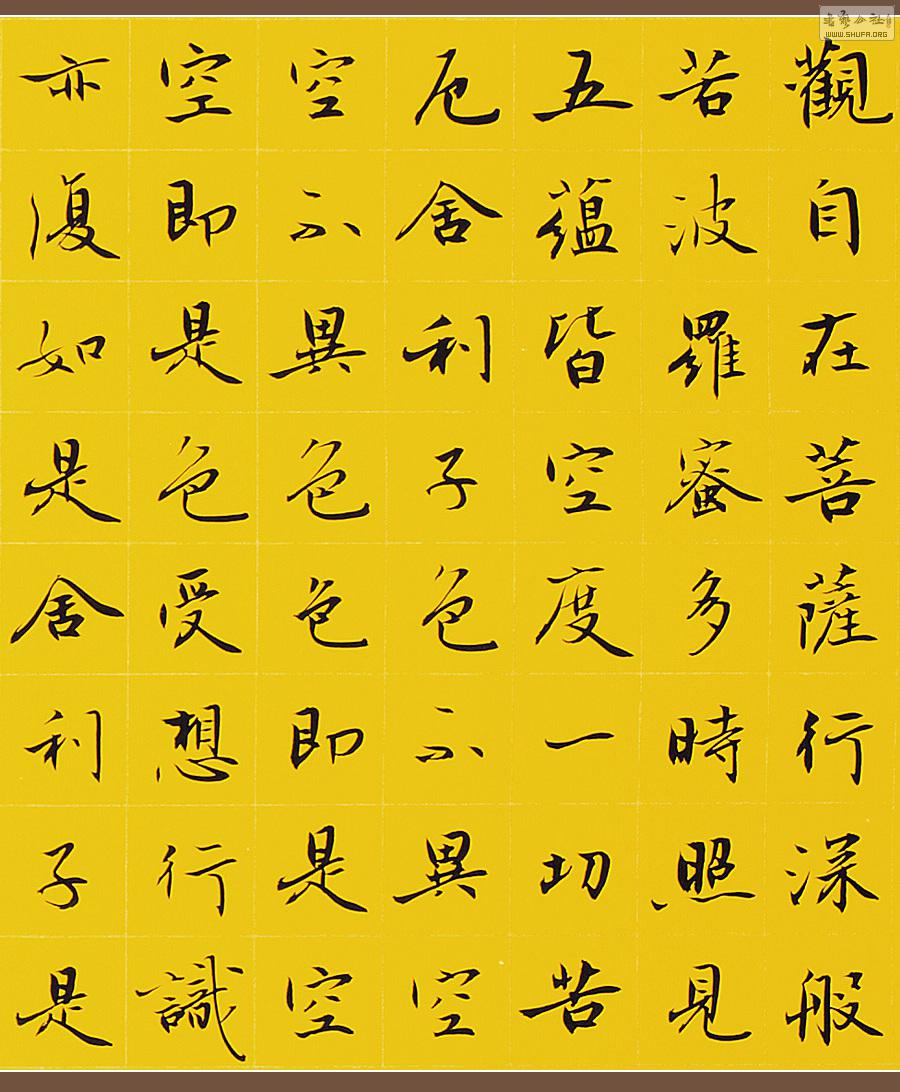 觀自在菩薩行深般
若波羅蜜多時照見
五蘊皆空度一切苦
厄舍利子色不異空
空不異色色即是空
空即是色受想行識
亦復如是舍利子是
WWW.SHUFA.ORG